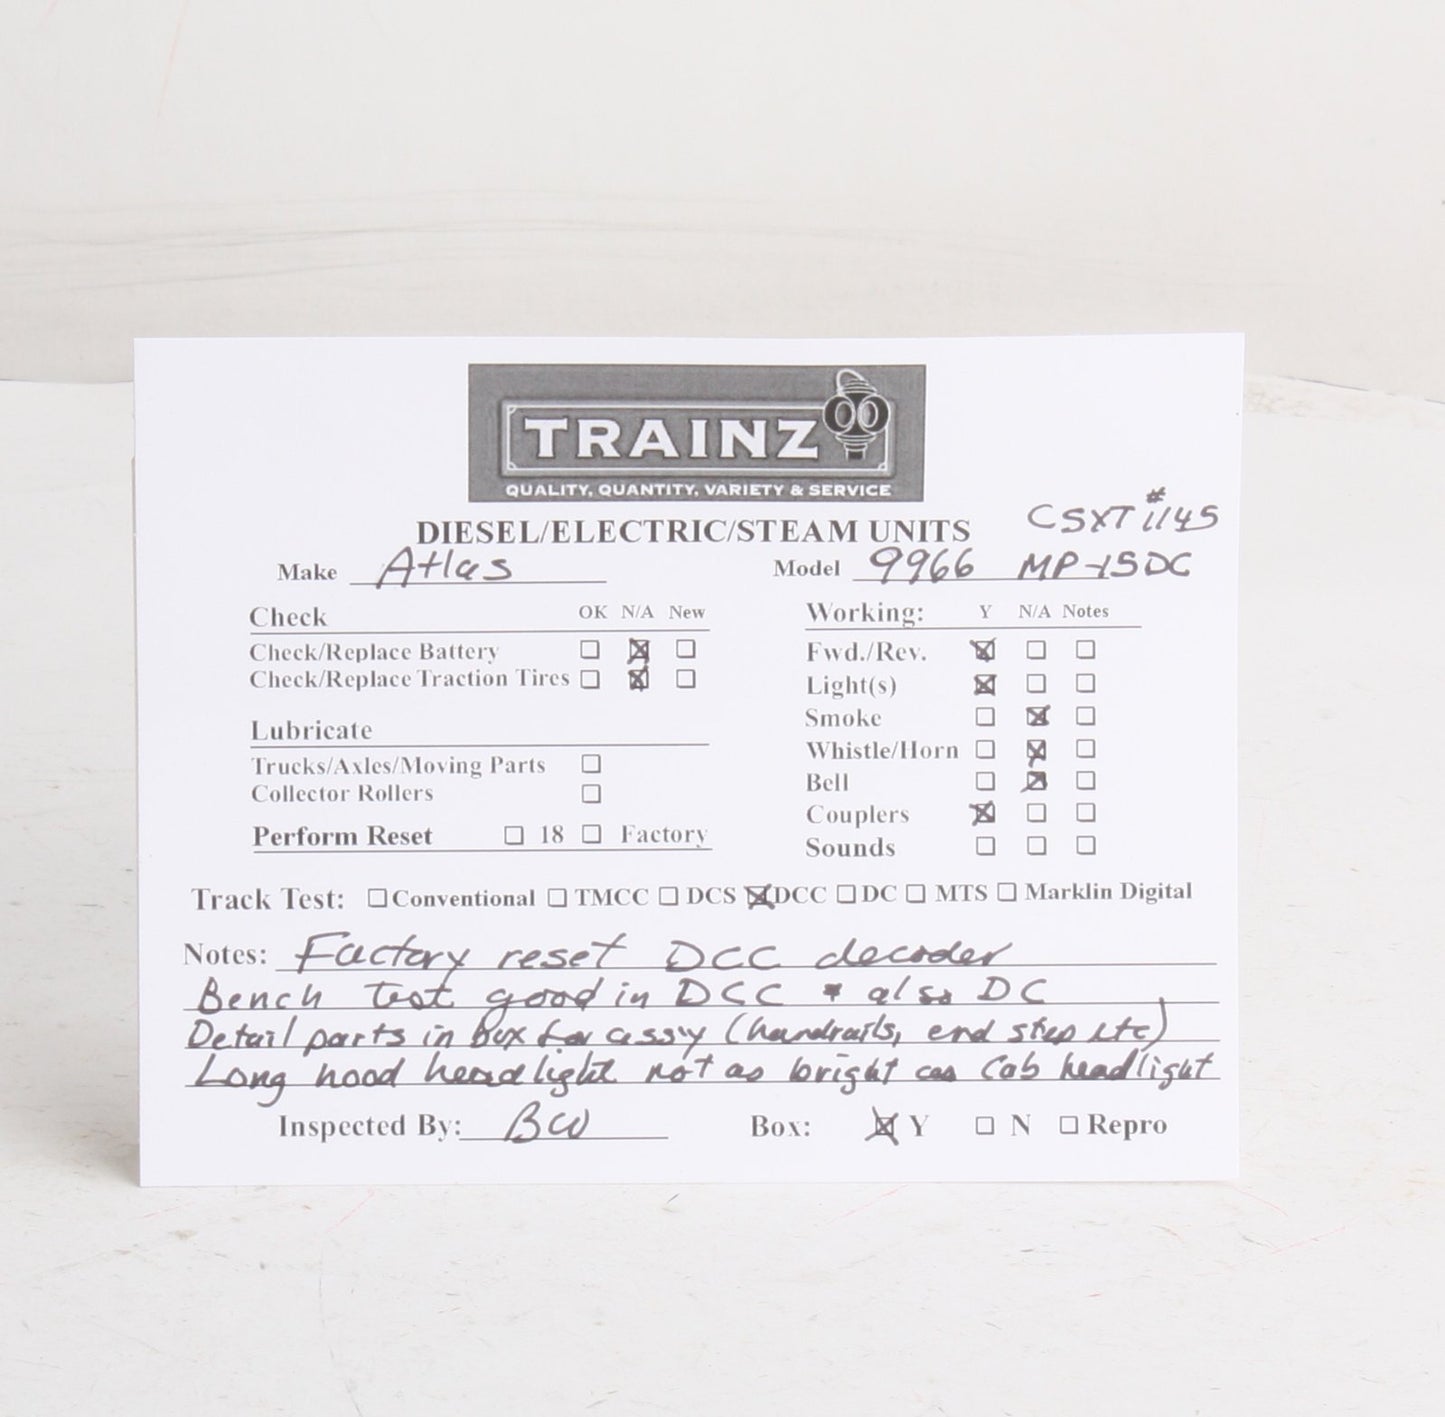 TRAINZ
QUALITY, QUANTITY, VARIETY & SERVICE
CSXT #1145
DIESEL/ELECTRIC/STEAM UNITS
Make Atlas Model 9966 MP-15DC
Check OK N/A New
Check/Replace Battery ☐ ☒ ☐
Check/Replace Traction Tires ☐ ☒ ☐
Lubricate
Trucks/Axles/Moving Parts ☐
Collector Rollers ☐
Perform Reset ☐ 18 ☐ Factory
Working: Y N/A Notes
Fwd./Rev. ☒ ☐ ☐
Light(s) ☒ ☐ ☐
Smoke ☐ ☒ ☐
Whistle/Horn ☐ ☒ ☐
Bell ☐ ☒ ☐
Couplers ☒ ☐ ☐
Sounds ☐ ☐ ☐
Track Test: ☐ Conventional ☐ TMCC ☐ DCS ☒ DCC ☐ DC ☐ MTS ☐ Marklin Digital
Notes: Factory reset DCC decoder
Bench test good in DCC * also DC
Detail parts in box for assy (handrails, end step etc)
Long hood headlight not as bright as Cab headlight
Inspected By: BW Box: ☒ Y ☐ N ☐ Repro